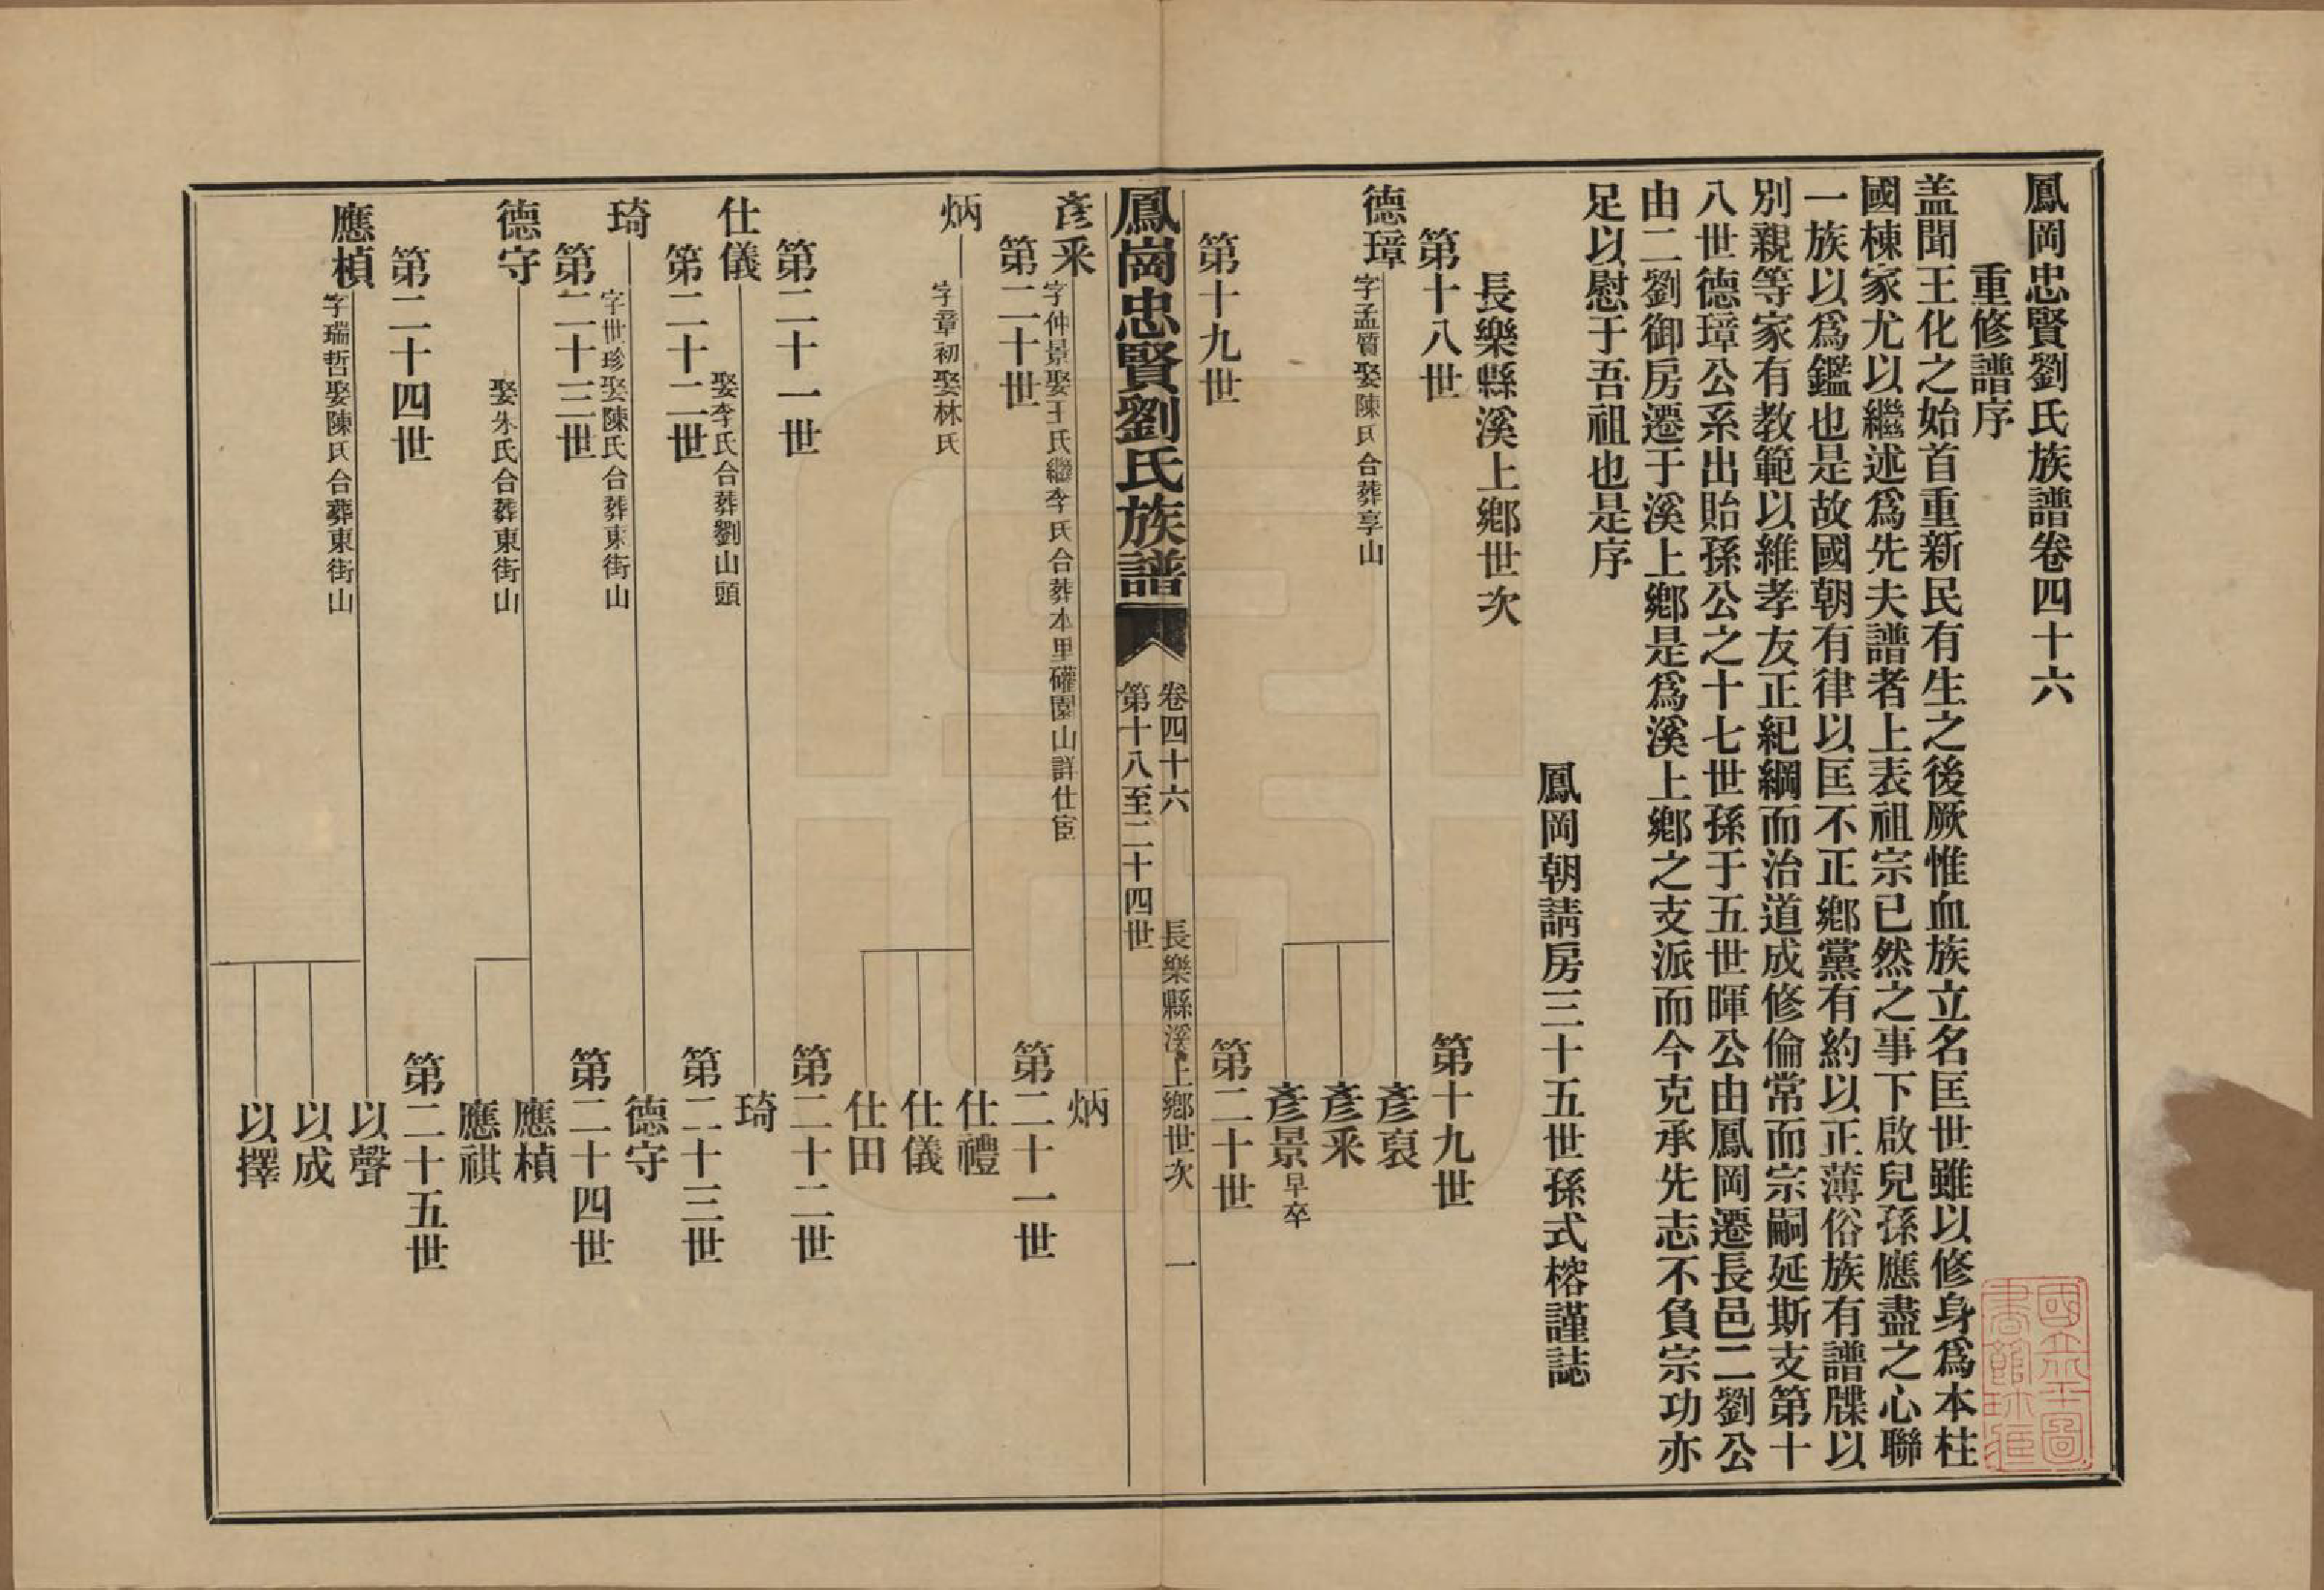 鳳岡忠賢劉氏族譜卷四十六
重修譜序
盖聞王化之始首重新民有生之後厥惟血族立名匡世雖以修身爲本柱
國棟家尤以繼述爲先夫譜者上表祖宗已然之事下啟兒孫應盡之心聯
一族以爲鑑也是故國朝有律以匡不正鄉黨有約以正薄俗族有譜牒以
別親等家有教範以維孝友正紀綱而治道成修倫常而宗嗣延斯支第十
八世德璋公系出貽孫公之十七世孫于五世暉公由鳳岡遷長邑二劉公
由二劉御房遷于溪上鄉是爲溪上鄉之支派而今克承先志不負宗功亦
足以慰于吾祖也是序
鳳岡朝請房三十五世孫式榕謹誌
長樂縣溪上鄉世次
第十八世
第十九世
德璋
字孟質娶陳氏合葬享山
彥裒
彥釆
彥景早卒
第十九世
第二十世
鳳崗忠賢劉氏族譜
卷四十六
長樂縣溪上鄉世次
一
第十八至二十四世
彥釆
字仲景娶王氏繼李氏合葬本里礶園山詳仕宦
炳
第二十世
第二十一世
炳
字章初娶林氏
仕禮
仕儀
仕田
第二十一世
第二十二世
仕儀
娶李氏合葬劉山頭
琦
第二十二世
第二十三世
琦
字世珍娶陳氏合葬東街山
德守
第二十三世
第二十四世
德守
娶朱氏合葬東街山
應楨
應祺
第二十四世
第二十五世
應楨
字瑞哲娶陳氏合葬東街山
以聲
以成
以擇
國立北平圖
書館珍藏